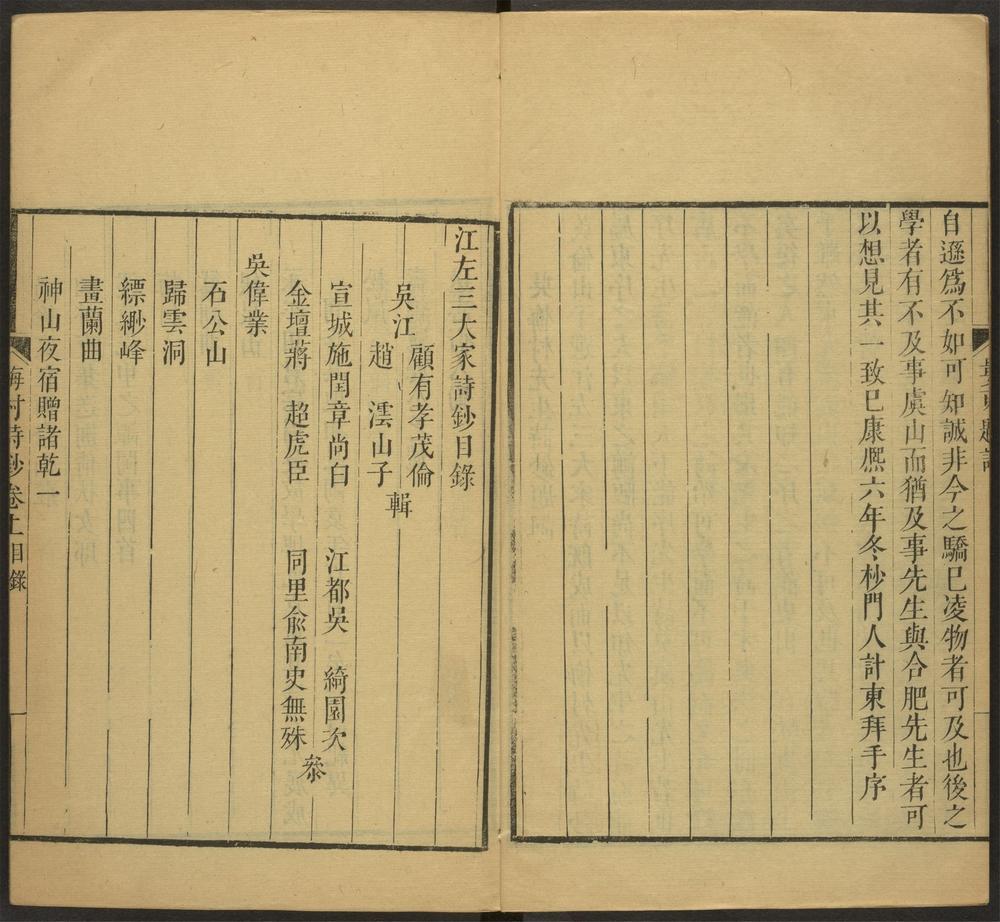 自遜爲不如可知誠非今之驕已凌物者可及也後之
學者有不及事虞山而猶及事先生與合肥先生者可
以想見其一致已康熙六年冬杪門人計東拜手序
江左三大家詩鈔目錄
吳江
顧有孝茂倫
趙 澐山子
輯
宣城施閏章尚白
江都吳 綺園次
金壇蔣 超虎臣
同里兪南史無殊
叅
吳偉業
石公山
歸雲洞
縹緲峰
畫蘭曲
神山夜宿贈諸乾一
梅村詩鈔卷上目錄
一